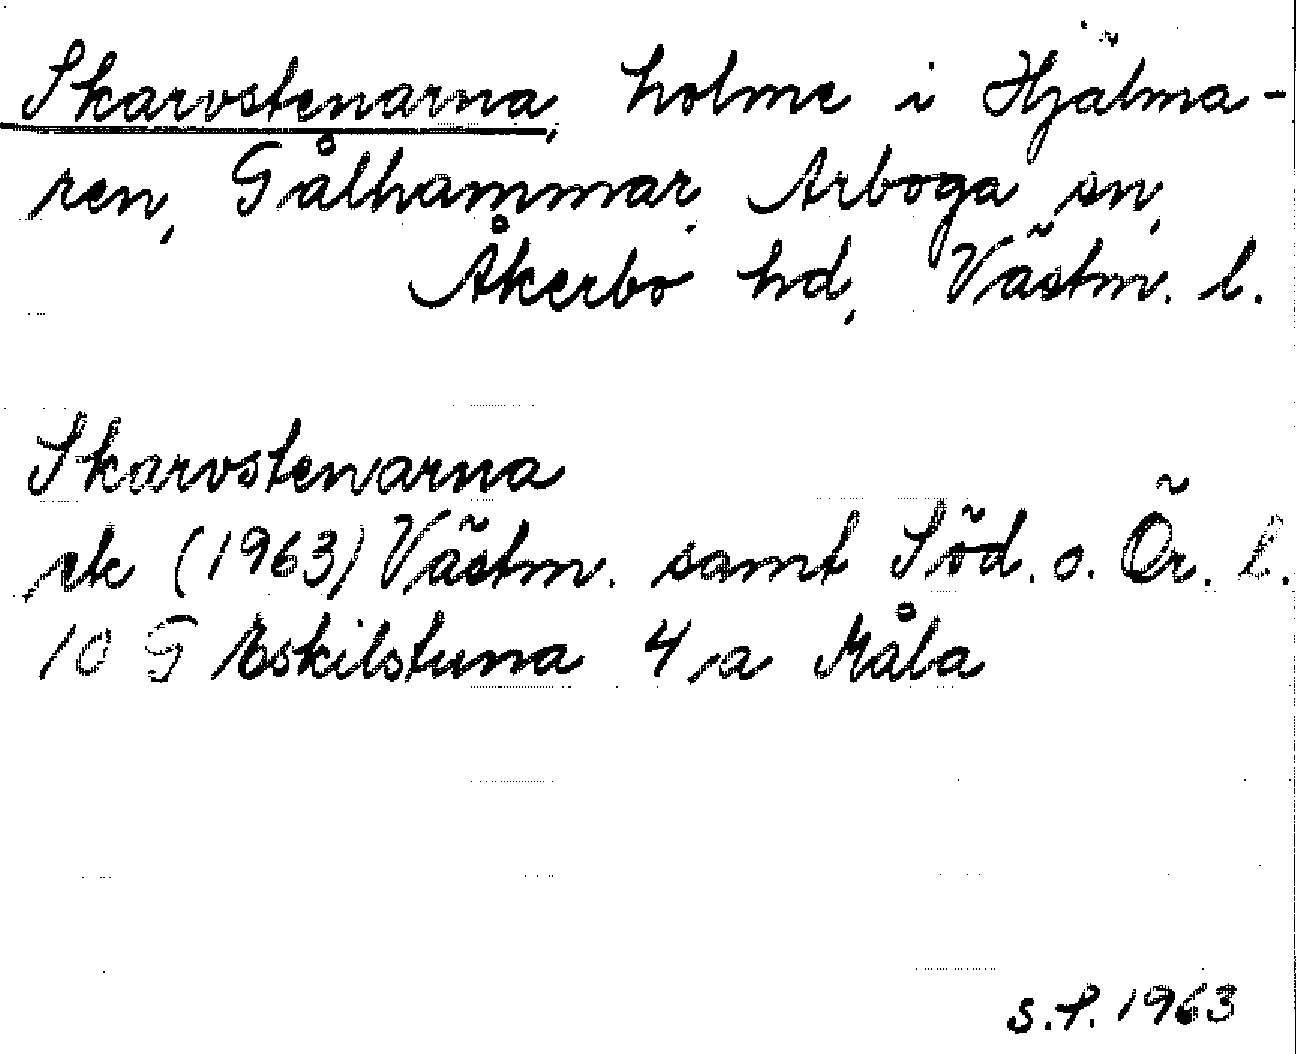 Skarvstenarna, holme i Hjälma-
ren, Gålhammar, Arboga sn,
Åkerbo hd, Västm. l.
Skarvstenarna
ek (1963) Västm. samt Söd. o. Ör. l.
10 G Eskilstuna 4 a Måla
S.P. 1963